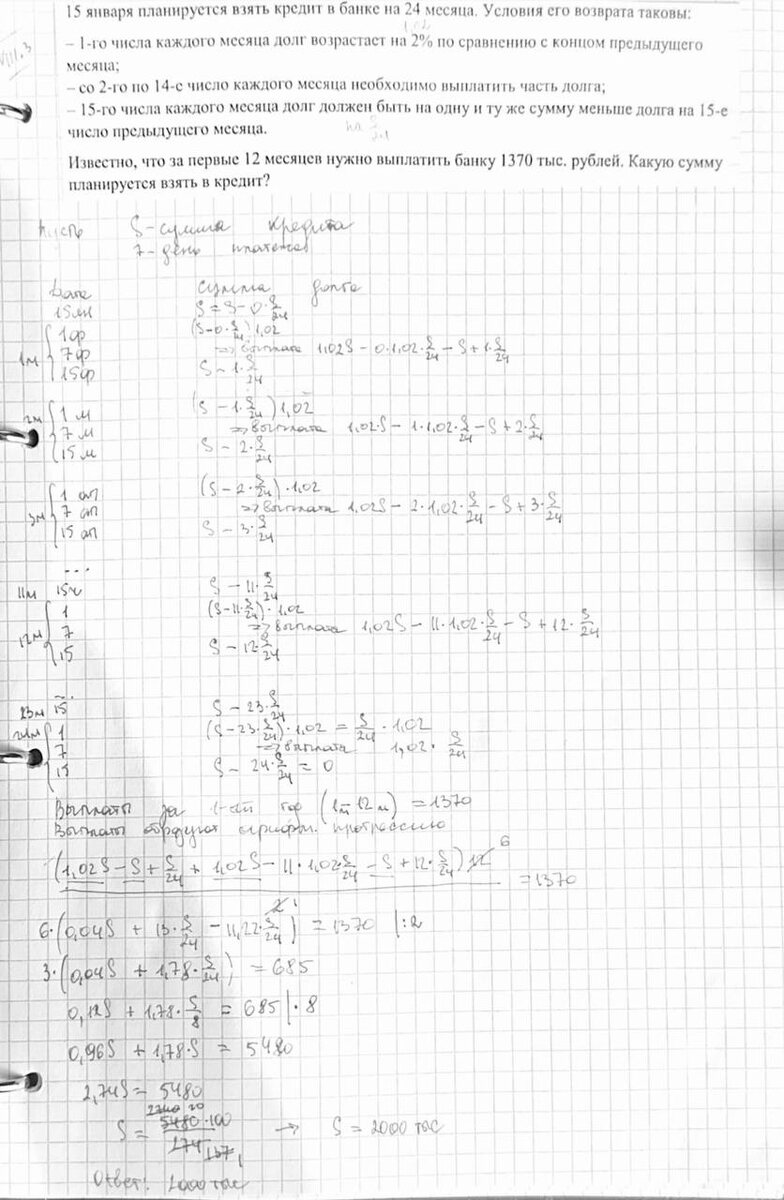 15 января планируется взять кредит в банке на 24 месяца. Условия его возврата таковы:
1,02
– 1-го числа каждого месяца долг возрастает на 2% по сравнению с концом предыдущего
месяца;
VIII.3
– со 2-го по 14-е число каждого месяца необходимо выплатить часть долга;
– 15-го числа каждого месяца долг должен быть на одну и ту же сумму меньше долга на 15-е
число предыдущего месяца.
на S/24
Известно, что за первые 12 месяцев нужно выплатить банку 1370 тыс. рублей. Какую сумму
планируется взять в кредит?
Пусть S - сумма кредита
7 - день платежа
Дата сумма долга
15 ян S = S - 0·S/24
1м 1 ф (S - 0·S/24) 1,02
7 ф => выплата 1,02S - 0·1,02·S/24 - S + 1·S/24
15 ф S - 1·S/24
2м 1 м (S - 1·S/24) 1,02
7 м => выплата 1,02·S - 1·1,02·S/24 - S + 2·S/24
15 м S - 2·S/24
3м 1 ап (S - 2·S/24)·1,02
7 ап => выплата 1,02S - 2·1,02·S/24 - S + 3·S/24
15 ап S - 3·S/24
...
11м 15 S - 11·S/24
12м 1 (S - 11·S/24)·1,02
7 => выплата 1,02S - 11·1,02·S/24 - S + 12·S/24
15 S - 12·S/24
...
23м 15 S - 23·S/24
24м 1 (S - 23·S/24)·1,02 = S/24·1,02
7 => выплата 1,02·S/24
15 S - 24·S/24 = 0
Выплаты за 1-ый год (1м 12м) = 1370
Выплаты образуют арифм. прогрессию
(1,02S - S + S/24 + 1,02S - 11·1,02 S/24 - S + 12·S/24) 12 6
2 1 = 1370
6·(0,04S + 13·S/24 - 11,22·S/24) = 1370 |:2
3·(0,04S + 1,78·S/24) = 685
0,12S + 1,78·S/8 = 685 |·8
0,96S + 1,78·S = 5480
2,74S = 5480
2740 20
S = 5480·100 / 274 137 1 → S = 2000 тыс
Ответ: 2000 тыс